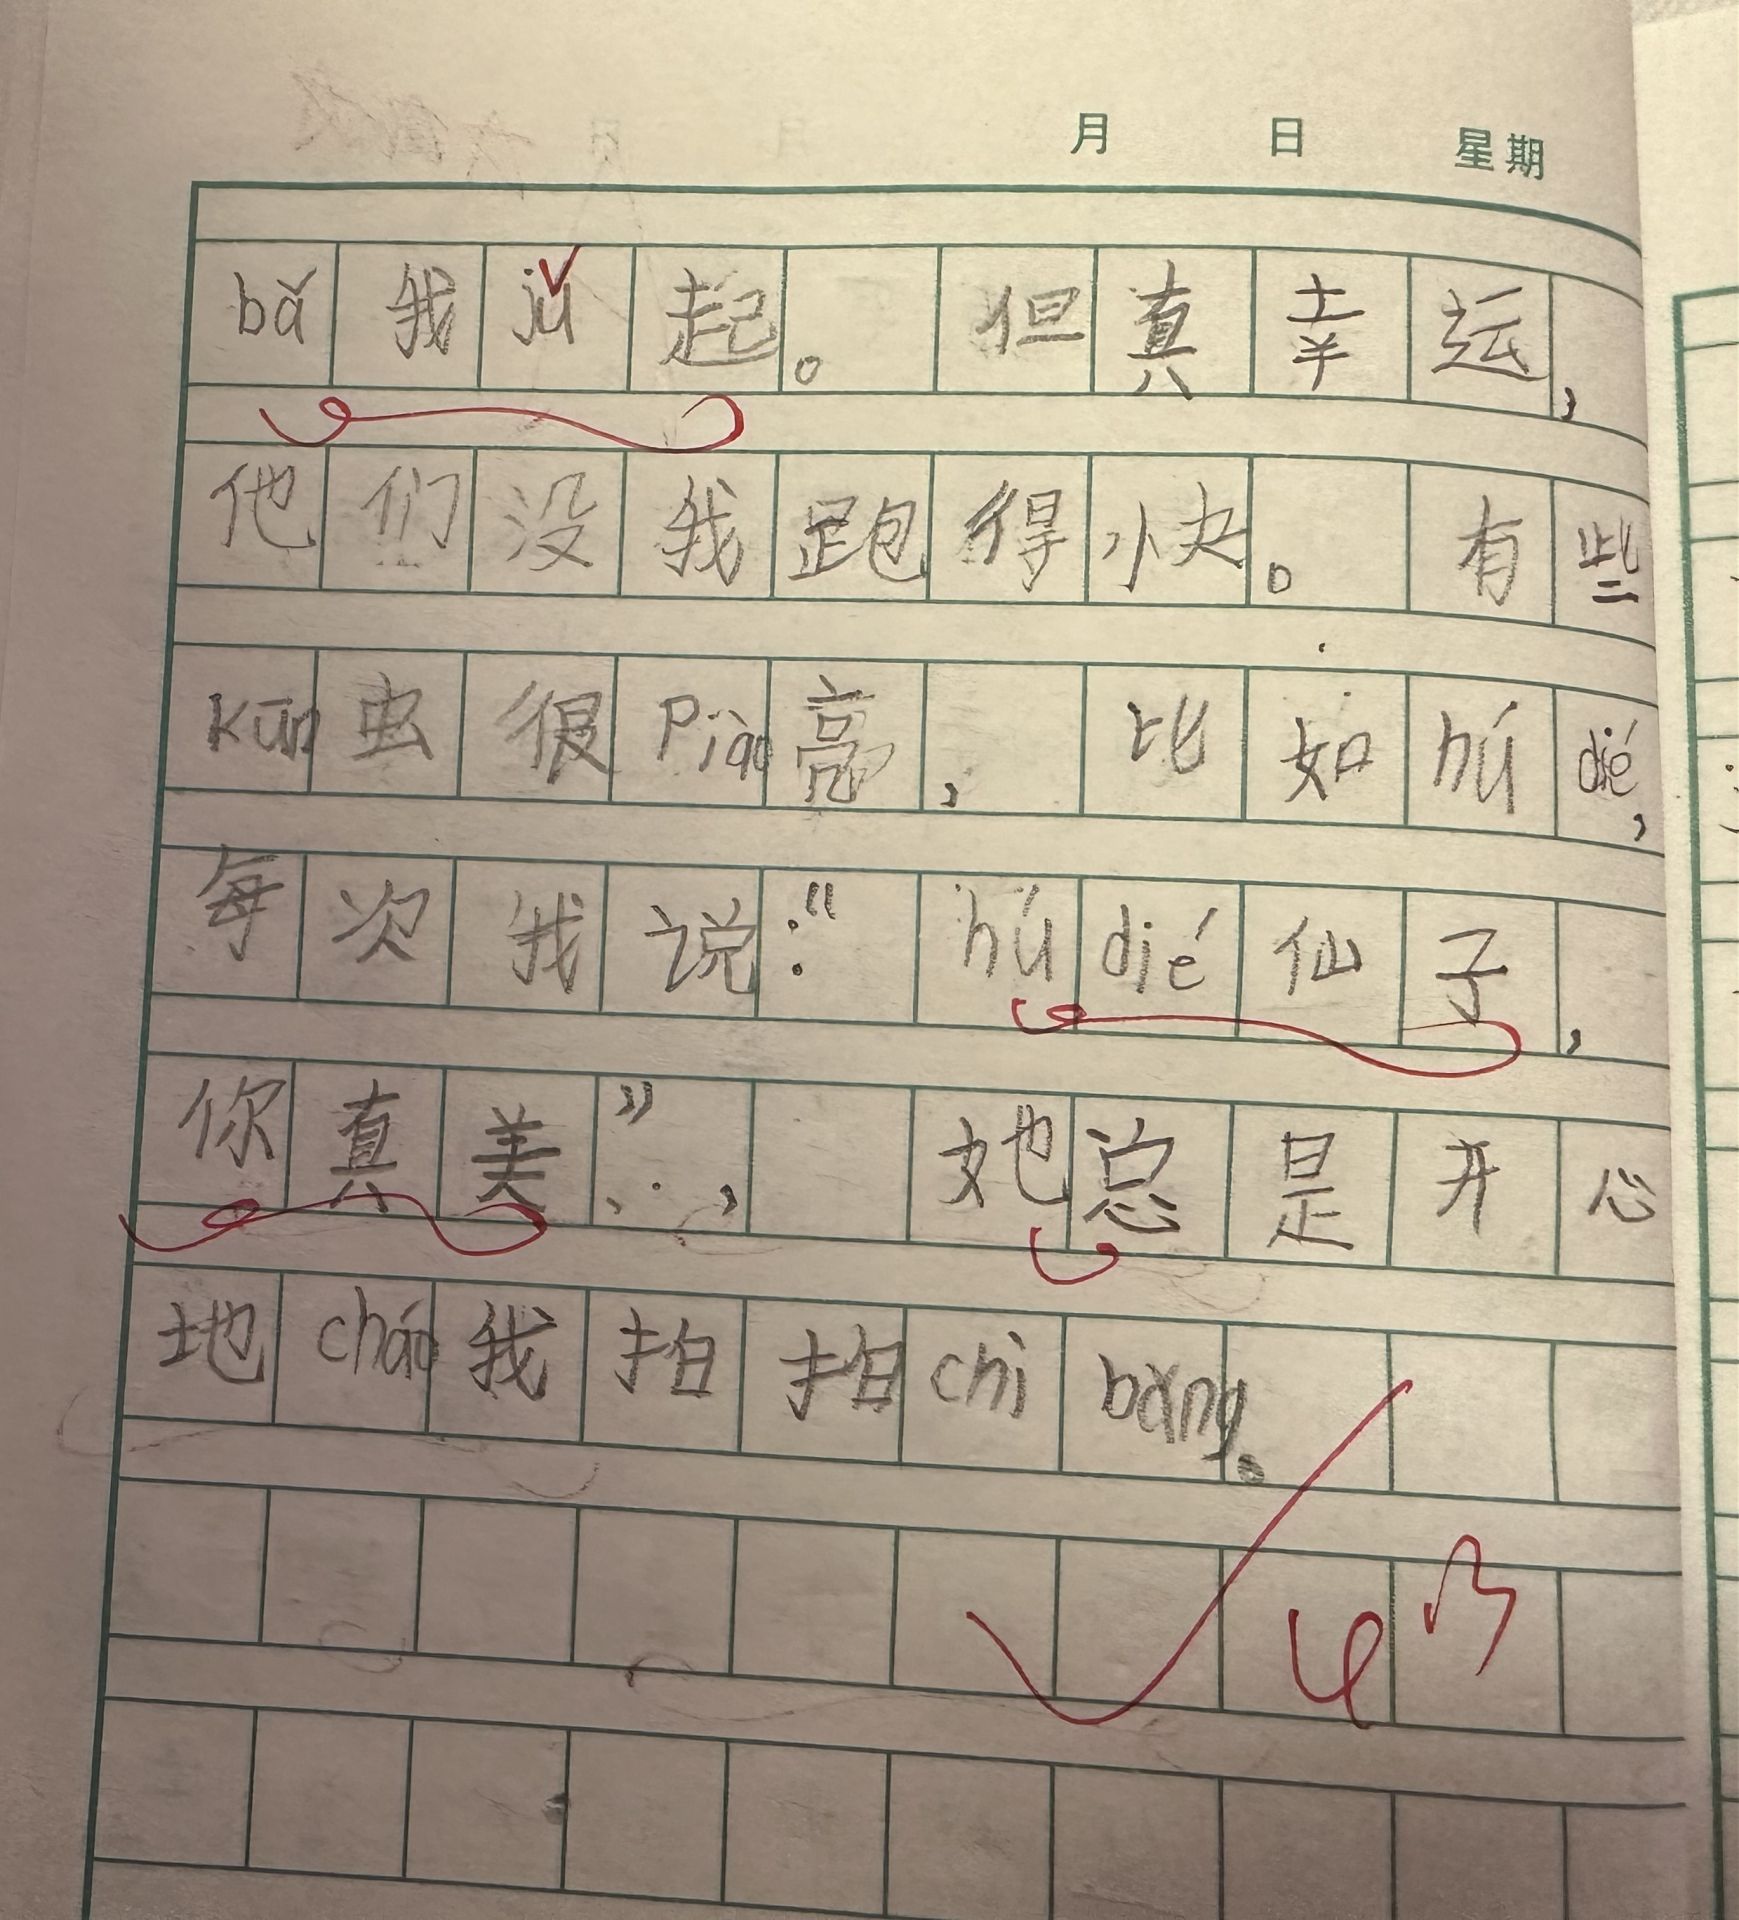 月 日 星期
bǎ我jǔ起。但真幸运，
他们没我跑得快。有些
kūn虫很piào亮，比如hú dié，
每次我说：“hú dié仙子，
你真美…”，她总是开心
地cháo我拍拍chì bǎng。